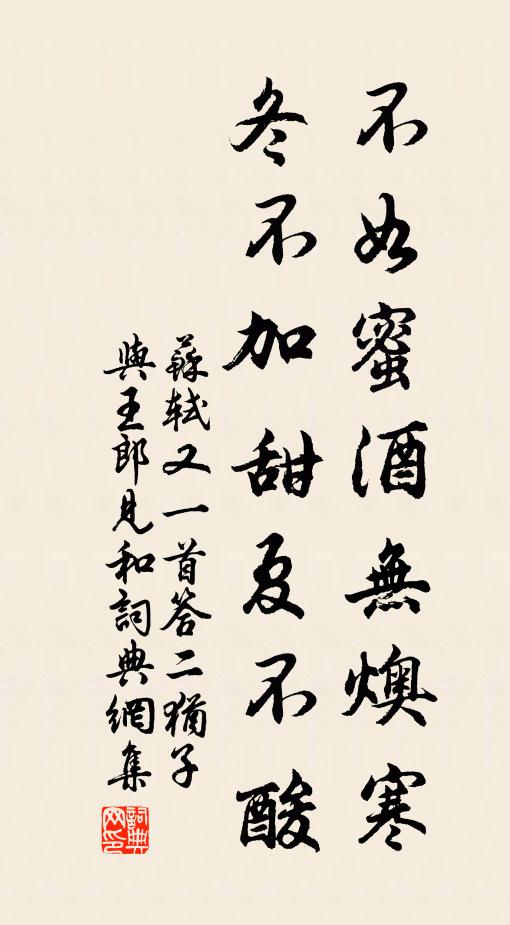 不如蜜酒無燠寒
冬不加甜夏不酸
蘇軾又一首答二猶子
與王郎見和詞典網集
詞典
网印